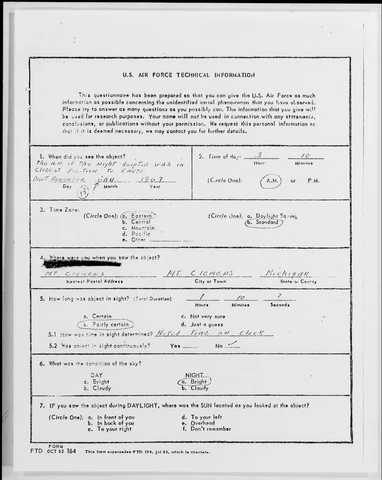 U.S. AIR FORCE TECHNICAL INFORMATION
This questionnaire has been prepared so that you can give the U.S. Air Force as much
information as possible concerning the unidentified aerial phenomenon that you have observed.
Please try to answer as many questions as you possibly can. The information that you give will
be used for research purposes. Your name will not be used in connection with any statements,
conclusions, or publications without your permission. We request this personal information so
that if it is deemed necessary, we may contact you for further details.
1. When did you see the object?
The A.M. of the night Jupiter was in
closest position to earth
Don't Remember Jan 1963
Day Month Year
2. Time of day: 3 10
Hour Minutes
(Circle One): A.M. or P.M.
3. Time Zone:
(Circle One): a. Eastern
b. Central
c. Mountain
d. Pacific
e. Other
(Circle One): a. Daylight Saving
b. Standard
4. Where were you when you saw the object?
MT Clemens MT Clemens Michigan
Nearest Postal Address City or Town State or County
5. How long was object in sight? (Total Duration) 1 10 ?
Hours Minutes Seconds
a. Certain c. Not very sure
b. Fairly certain d. Just a guess
5.1 How was time in sight determined? Noted Time on Clock
5.2 Was object in sight continuously? Yes No ✓
6. What was the condition of the sky?
DAY NIGHT
a. Bright a. Bright
b. Cloudy b. Cloudy
7. IF you saw the object during DAYLIGHT, where was the SUN located as you looked at the object?
(Circle One): a. In front of you d. To your left
b. In back of you e. Overhead
c. To your right f. Don't remember
FORM
FTD OCT 62 164 This form supersedes FTD 164, Jul 62, which is obsolete.